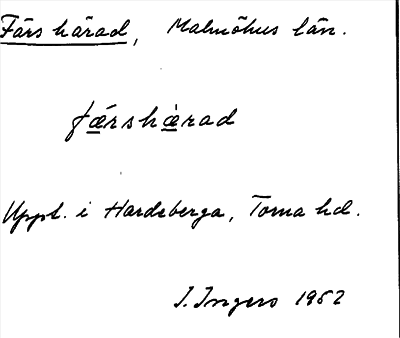 Färs härad, Malmöhus län.
fǽ̱rshæ̱̀rad
Uppt. i Hardeberga, Torna hd.
I. Ingers 1952